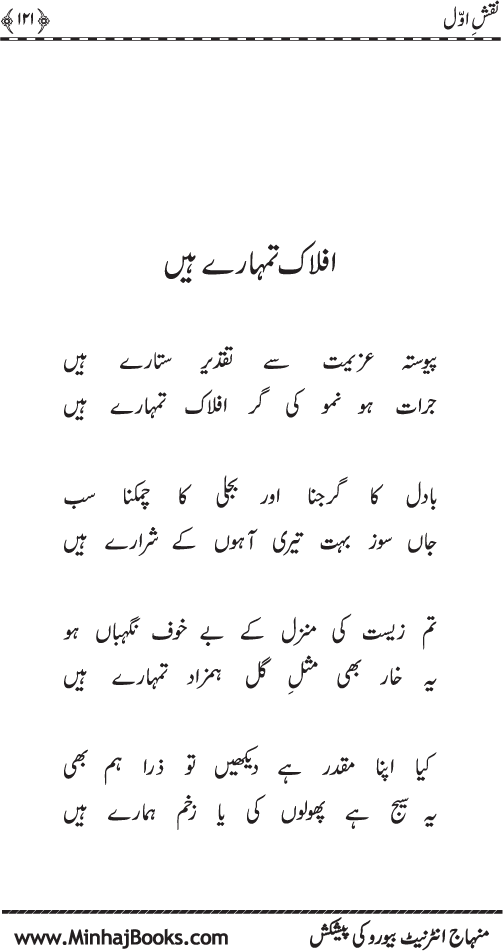 نقشِ اوّل
﴿۱۲۱﴾
افلاک تمہارے ہیں
پیوستہ عزیمت سے تقدیرِ ستارے ہیں
جرات ہو نمو کی گر افلاک تمہارے ہیں
بادل کا گرجنا اور بجلی کا چمکنا سب
جاں سوز بہت تیری آہوں کے شرارے ہیں
تم زیست کی منزل کے بے خوف نگہباں ہو
یہ خار بھی مثلِ گل ہمزاد تمہارے ہیں
کیا اپنا مقدر ہے دیکھیں تو ذرا ہم بھی
یہ سیج ہے پھولوں کی یا زخم ہمارے ہیں
منہاج انٹرنیٹ بیورو کی پیشکش
www.MinhajBooks.com